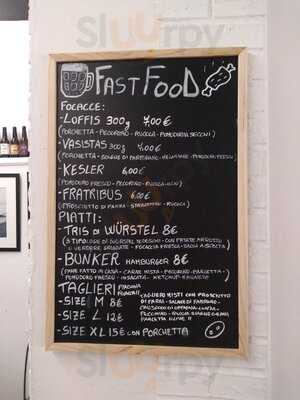 Sluurpy
FAST FOOD
FOCACCE:
-LOFFIS 300g 7,00€
(PORCHETTA - PECORINO - RUCOLA - POMODORINI SECCHI)
-VASISTAS 300g 7,00€
-KESLER 6,00€
(POMODORO FRESCO - PECORINO - RUCOLA
-FRATRIBUS 6,00€
(PROSCIUTTO DI PARMA - STRACCHINO - RUCOLA)
PIATTI:
-TRIS DI WÜRSTEL 8€
(3 TIPOLOGIE DI WÜRSTEL TEDESCHI CON PATATE ARROSTO
O VERDURE GRIGLIATE - FOCACCIA FRESCA - SALSA A SCELTA)
-BUNKER HAMBURGER 8€
(PANE FATTO IN CASA - CARNE MISTA - PECORINO - PANCETTA -
POMODORO FRESCO - INSALATA - KETCHUP
TAGLIERI
-SIZE M 8€
TAGLIERI MISTI CON PROSCIUTTO
DI PARMA - SALAME
-SIZE L 12€
PECORINO
-SIZE XL 15€ CON PORCHETTA